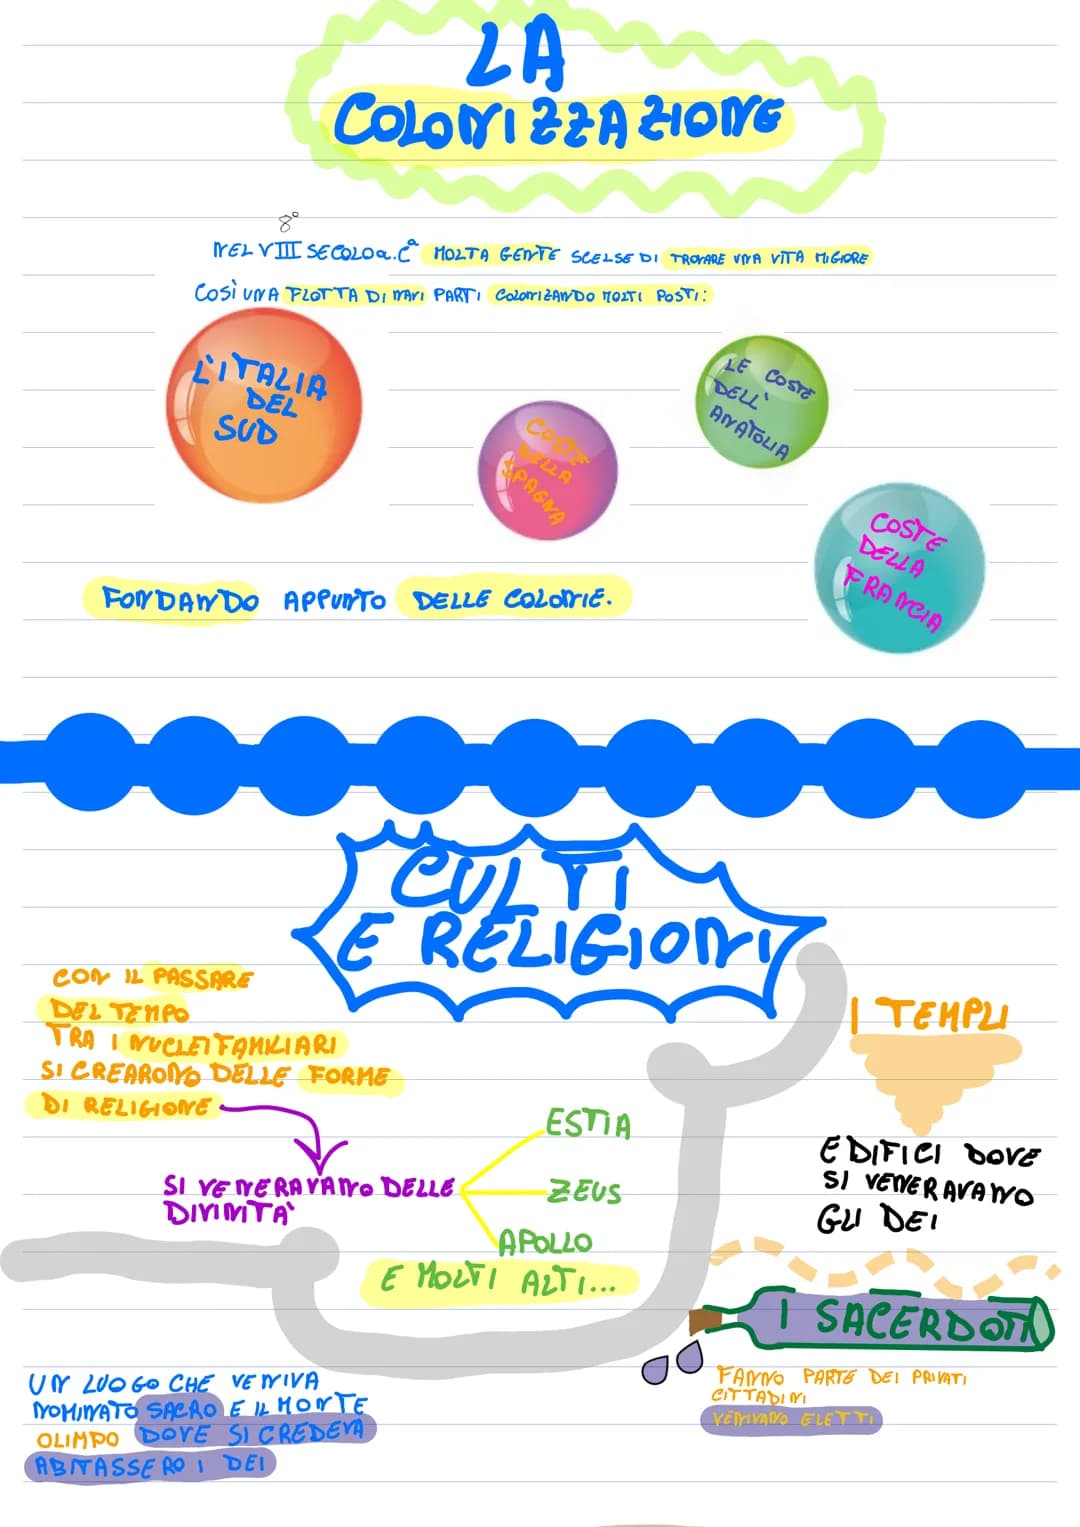 LA
COLONIZZAZIONE
8°
NEL VIII SECOLO a.C° MOLTA GENTE SCELSE DI TROVARE UNA VITA MIGIORE
COSÌ UNA FLOTTA DI NAVI PARTI COLONIZANDO MOLTI POSTI:
L'ITALIA
DEL
SUD
COSTE
DELLA
SPAGNA
LE COSTE
DELL'
ANATOLIA
COSTE
DELLA
FRANCIA
FONDANDO APPUNTO DELLE COLONIE.
CULTI
E RELIGIONI
CON IL PASSARE
DEL TEMPO
TRA I NUCLEI FAMILIARI
SI CREARONO DELLE FORME
DI RELIGIONE
SI VENERAVANO DELLE
DIVINITA'
ESTIA
ZEUS
APOLLO
E MOLTI ALTI...
I TEMPLI
EDIFICI DOVE
SI VENERAVANO
GLI DEI
I SACERDOTI
FANNO PARTE DEI PRIVATI
CITTADINI
VENIVANO ELETTI
UN LUOGO CHE VENIVA
NOMINATO SACRO E IL MONTE
OLIMPO DOVE SI CREDEVA
ABITASSERO I DEI